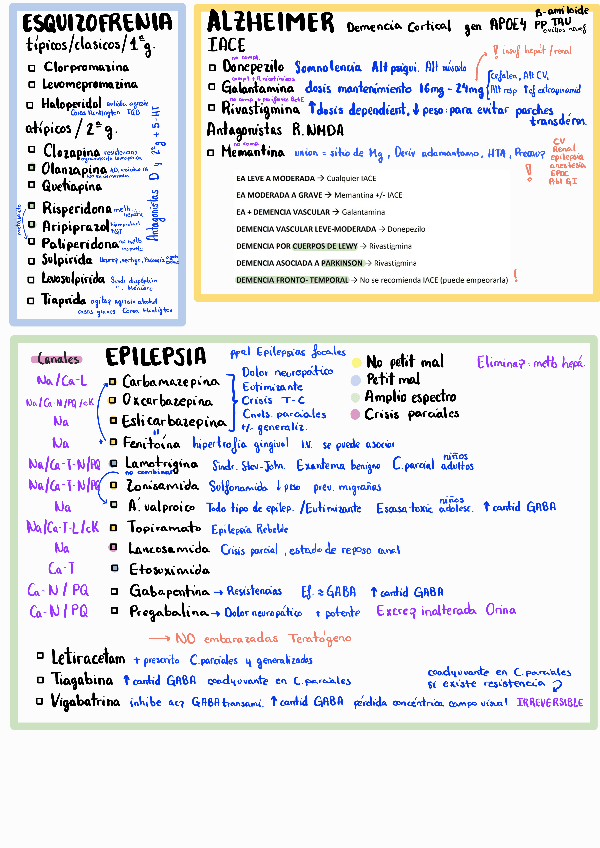 ESQUIZOFRENIA
típicos/clasicos/1ªg.
Clorpromazina
Levomepromazina
Haloperidol
atípicos / 2ªg.
Clozapina
Olanzapina
Quetiapina
Risperidona
Aripiprazol
Paliperidona
Sulpirida
Levosulpirida
Tiaprida
Antagonistas D y 2ªg + 5-HT
ALZHEIMER Demencia Cortical gen APOE4 PP TAU
B-amiloide
IACE
no compt.
Donepezilo Somnolencia Alt psiqui. Alt músado
! insuf hepát/renal
Galantamina dosis mantenimiento 16mg - 24mg
cefalea, Alt CV.
Rivastigmina ↑dosis dependient, ↓ peso: para evitar parches transdérm.
Antagonistas R.NMDA
Memantina union = sitio de Mg, Deriv adamantano, HTA, Precau?
!
CV
Renal
epilepsia
anestesia
EPOC
Alt GI
EA LEVE A MODERADA → Cualquier IACE
EA MODERADA A GRAVE → Memantina +/- IACE
EA + DEMENCIA VASCULAR → Galantamina
DEMENCIA VASCULAR LEVE-MODERADA → Donepezilo
DEMENCIA POR CUERPOS DE LEWY → Rivastigmina
DEMENCIA ASOCIADA A PARKINSON → Rivastigmina
DEMENCIA FRONTO- TEMPORAL → No se recomienda IACE (puede empeorarla) !
Canales EPILEPSIA ppal Epilepsias focales
No petit mal
Petit mal
Amplio espectro
Crisis parciales
Elimina?: metb hepá.
Na/Ca-L Carbamazepina
Na/Ca-N/PQ/cK Oxcarbazepina
Na Eslicarbazepina
Dolor neuropático
Eutimizante
Crisis T-C
Cnvls. parciales
+/- generaliz.
Na Fenitoína hipertrofia gingival I.V. se puede asociar
Na/Ca-T-N/PQ Lamotrigina Sindr. Stev-John. Exantema benigno C.parcial niños adultos
no combinar
Na/Ca-T-N/PQ Zonisamida Sulfonamida ↓ peso prev. migrañas
Na A. valproico Todo tipo de epilep. /Eutimizante Escasa toxic niños adolesc. ↑ cantid GABA
Na/Ca-T-L/cK Topiramato Epilepsia Rebelde
Na Lancosamida Crisis parcial, estado de reposo canal
Ca-T Etosuximida
Ca-N / PQ Gabapentina → Resistencias Ef. ≥ GABA ↑ cantid GABA
Ca-N / PQ Pregabalina → Dolor neuropático + potente Excre? inalterada Orina
→ NO embarazadas Teratógeno
Letiracetam + prescrito C.parciales y generalizadas
Tiagabina ↑ cantid GABA coadyuvante en C.parciales
coadyuvante en C.parciales
si existe resistencia
Vigabatrina inhibe ac? GABA transami. ↑ cantid GABA pérdida concéntrica campo visual IRREVERSIBLE